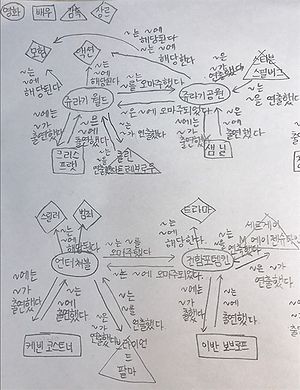 영화 배우 감독 장르
모험
액션
~는 ~에
해당된다
~는 ~에
해당된다
~는 ~를 오마주했다
쥬라기 월드
쥬라기공원
스티븐
스필버그
~은 ~에 오마주되었다
~은
~을 연출했다
~에는
~가
출연했다
~는
~에
출연했다
~가 연출했다
크리스
프랫
콜린
트레보로우
샘 닐
스릴러
범죄
드라마
~는
~에
해당된다
~는
~에
해당된다
언터처블
~는 ~를
오마주했다
~는 ~에 오마주되었다
전함포템킨
세르게이
M. 에이젠슈타인
~은 ~가
연출했다
~에는
~가
출연했다
~는
~에
출연했다
~은
~가
연출했다
~는
~을
연출했다
~에는
~가
출연했다
~는
~에
출연했다
케빈 코스트너
브라이언
드
팔마
이반 보브로프